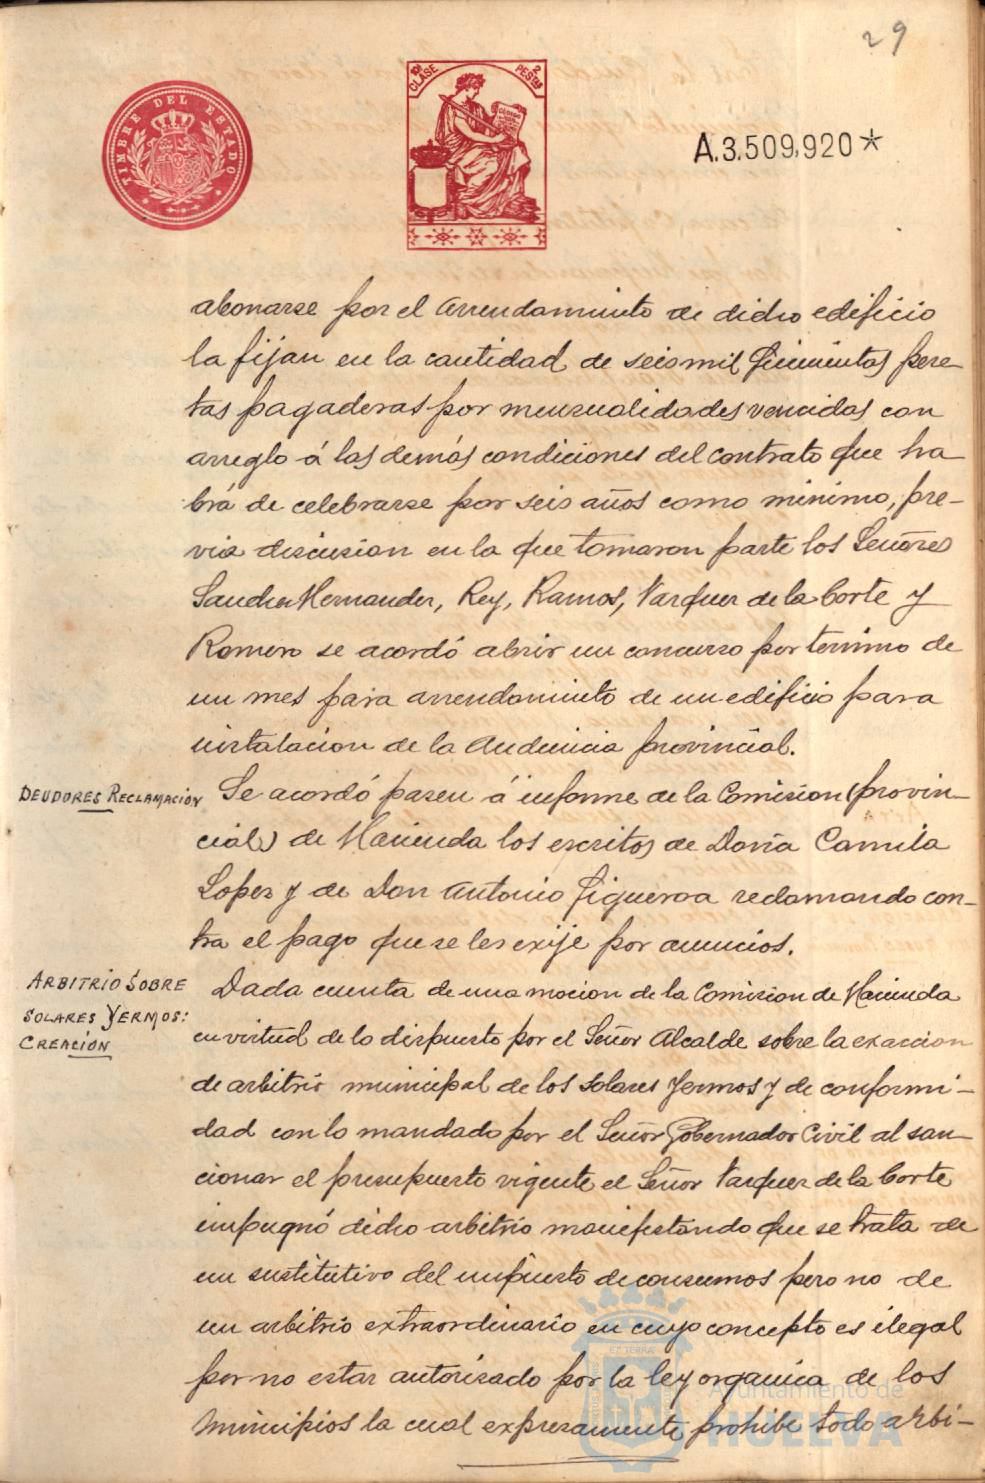 29
TIMBRE DEL ESTADO
10ª CLASE
2 PESTAS
A.3.509,920*
abonarse por el arrendamiento de dicho edificio
la fijan en la cantidad de seis mil quinientas pese-
tas pagaderas por mensualidades vencidas con
arreglo á las demás condiciones del contrato que ha
brá de celebrarse por seis años como minimo, pre-
via discusion en la que tomaron parte los Señores
Sanchez Hernandez, Rey, Ramos, Vazquez de la Corte y
Romero se acordó abrir un concurso por termino de
un mes para arrendamiento de un edificio para
instalacion de la Audiencia provincial.
DEUDORES RECLAMACIÓN
Se acordó pasen á informe de la Comision (provin-
cial) de Hacienda los escritos de Doña Camila
Lopez y de Don Antonio Figueroa reclamando con-
tra el pago que se les exije por anuncios.
ARBITRIO SOBRE
SOLARES YERMOS:
CREACIÓN
Dada cuenta de una mocion de la Comision de Hacienda
en virtud de lo dispuesto por el Señor Alcalde sobre la exaccion
de arbitrio municipal de los solares yermos y de conformi-
dad con lo mandado por el Señor Gobernador Civil al san-
cionar el presupuesto vigente el Señor Vazquez de la Corte
impugnó dicho arbitrio manifestando que se trata de
un sustitutivo del impuesto de consumos pero no de
un arbitrio extraordinario en cuyo concepto es ilegal
por no estar autorizado por la ley organica de los
Municipios la cual expresamente prohibe todo arbi-
Ayuntamiento de
HUELVA